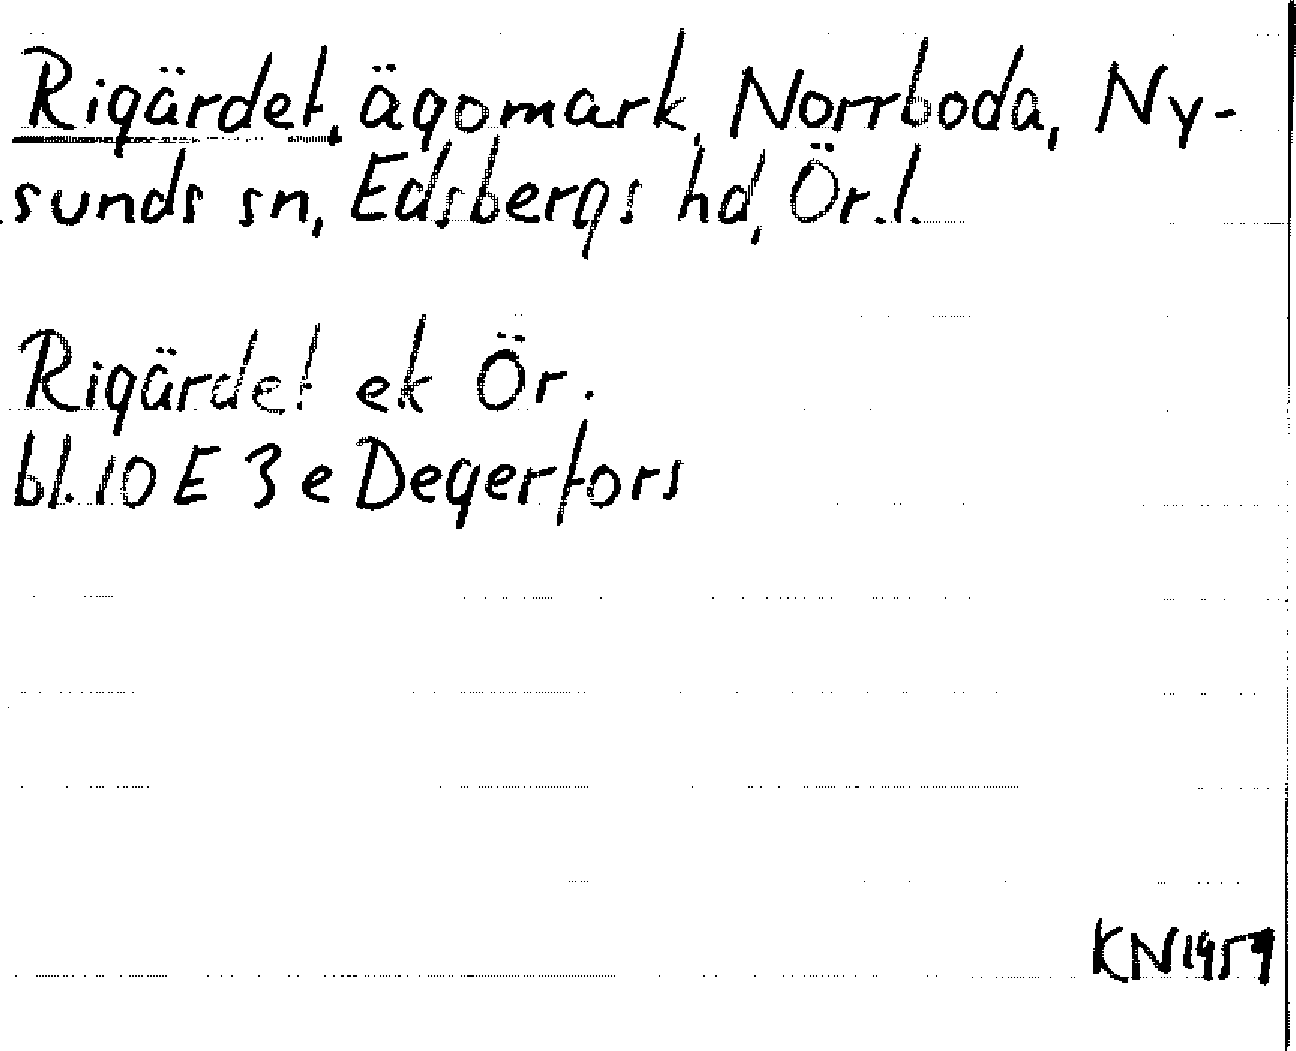 Rigärdet, ägomark, Norrboda, Ny-
sunds sn, Edsbergs hd, Ör.l.
Rigärdet ek Ör.
bl. 10 E 3 e Degerfors
KN 1959